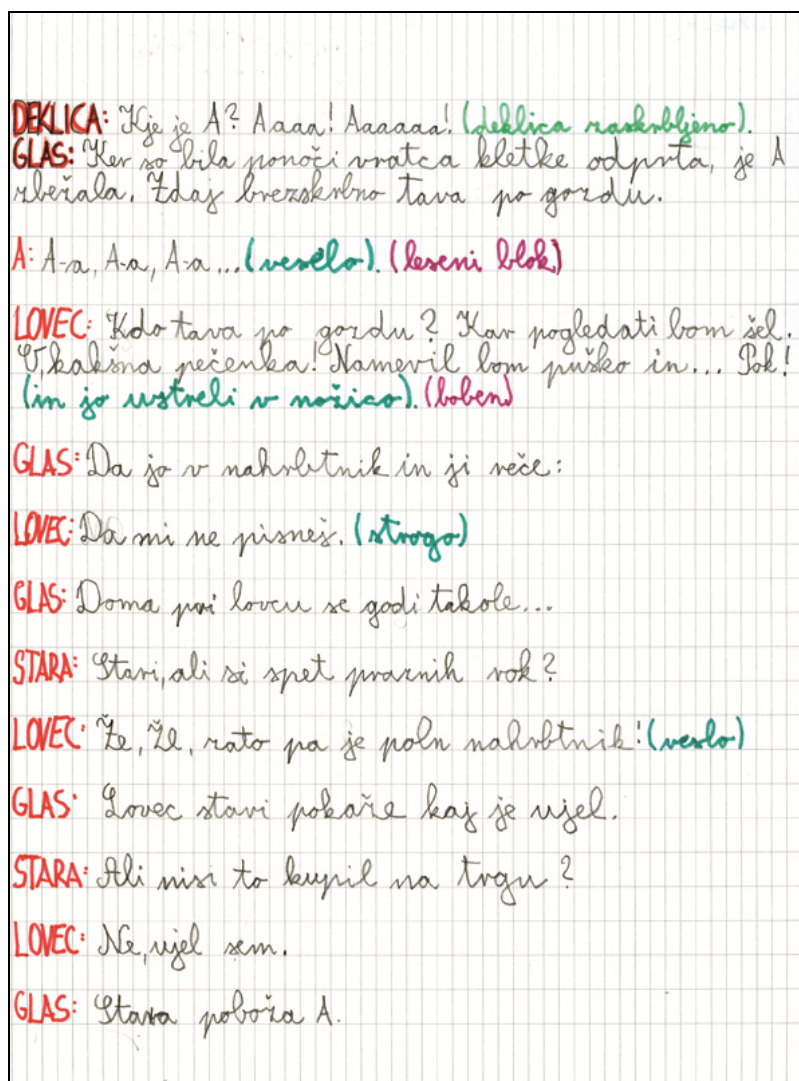 DEKLICA: Kje je A? Aaaa! Aaaaaa! (deklica zaskrbljeno).
GLAS: Ker so bila ponoči vratca kletke odprta, je A
zbežala. Zdaj brezskrbno tava po gozdu.
A: A-a, A-a, A-a... (veselo). (leseni blok)
LOVEC: Kdo tava po gozdu? Kar pogledati bom šel.
U, kakšna pečenka! Nameril bom puško in... Pok!
(in jo ustreli v nožico). (boben)
GLAS: Da jo v nahrbtnik in ji reče:
LOVEC: Da mi ne pisneš. (strogo)
GLAS: Doma pri lovcu se godi takole...
STARA: Stari, ali si spet praznih rok?
LOVEC: Že, že, zato pa je poln nahrbtnik! (veslo)
GLAS: Lovec stari pokaže kaj je ujel.
STARA: Ali nisi to kupil na trgu?
LOVEC: Ne, ujel sem.
GLAS: Stara poboža A.